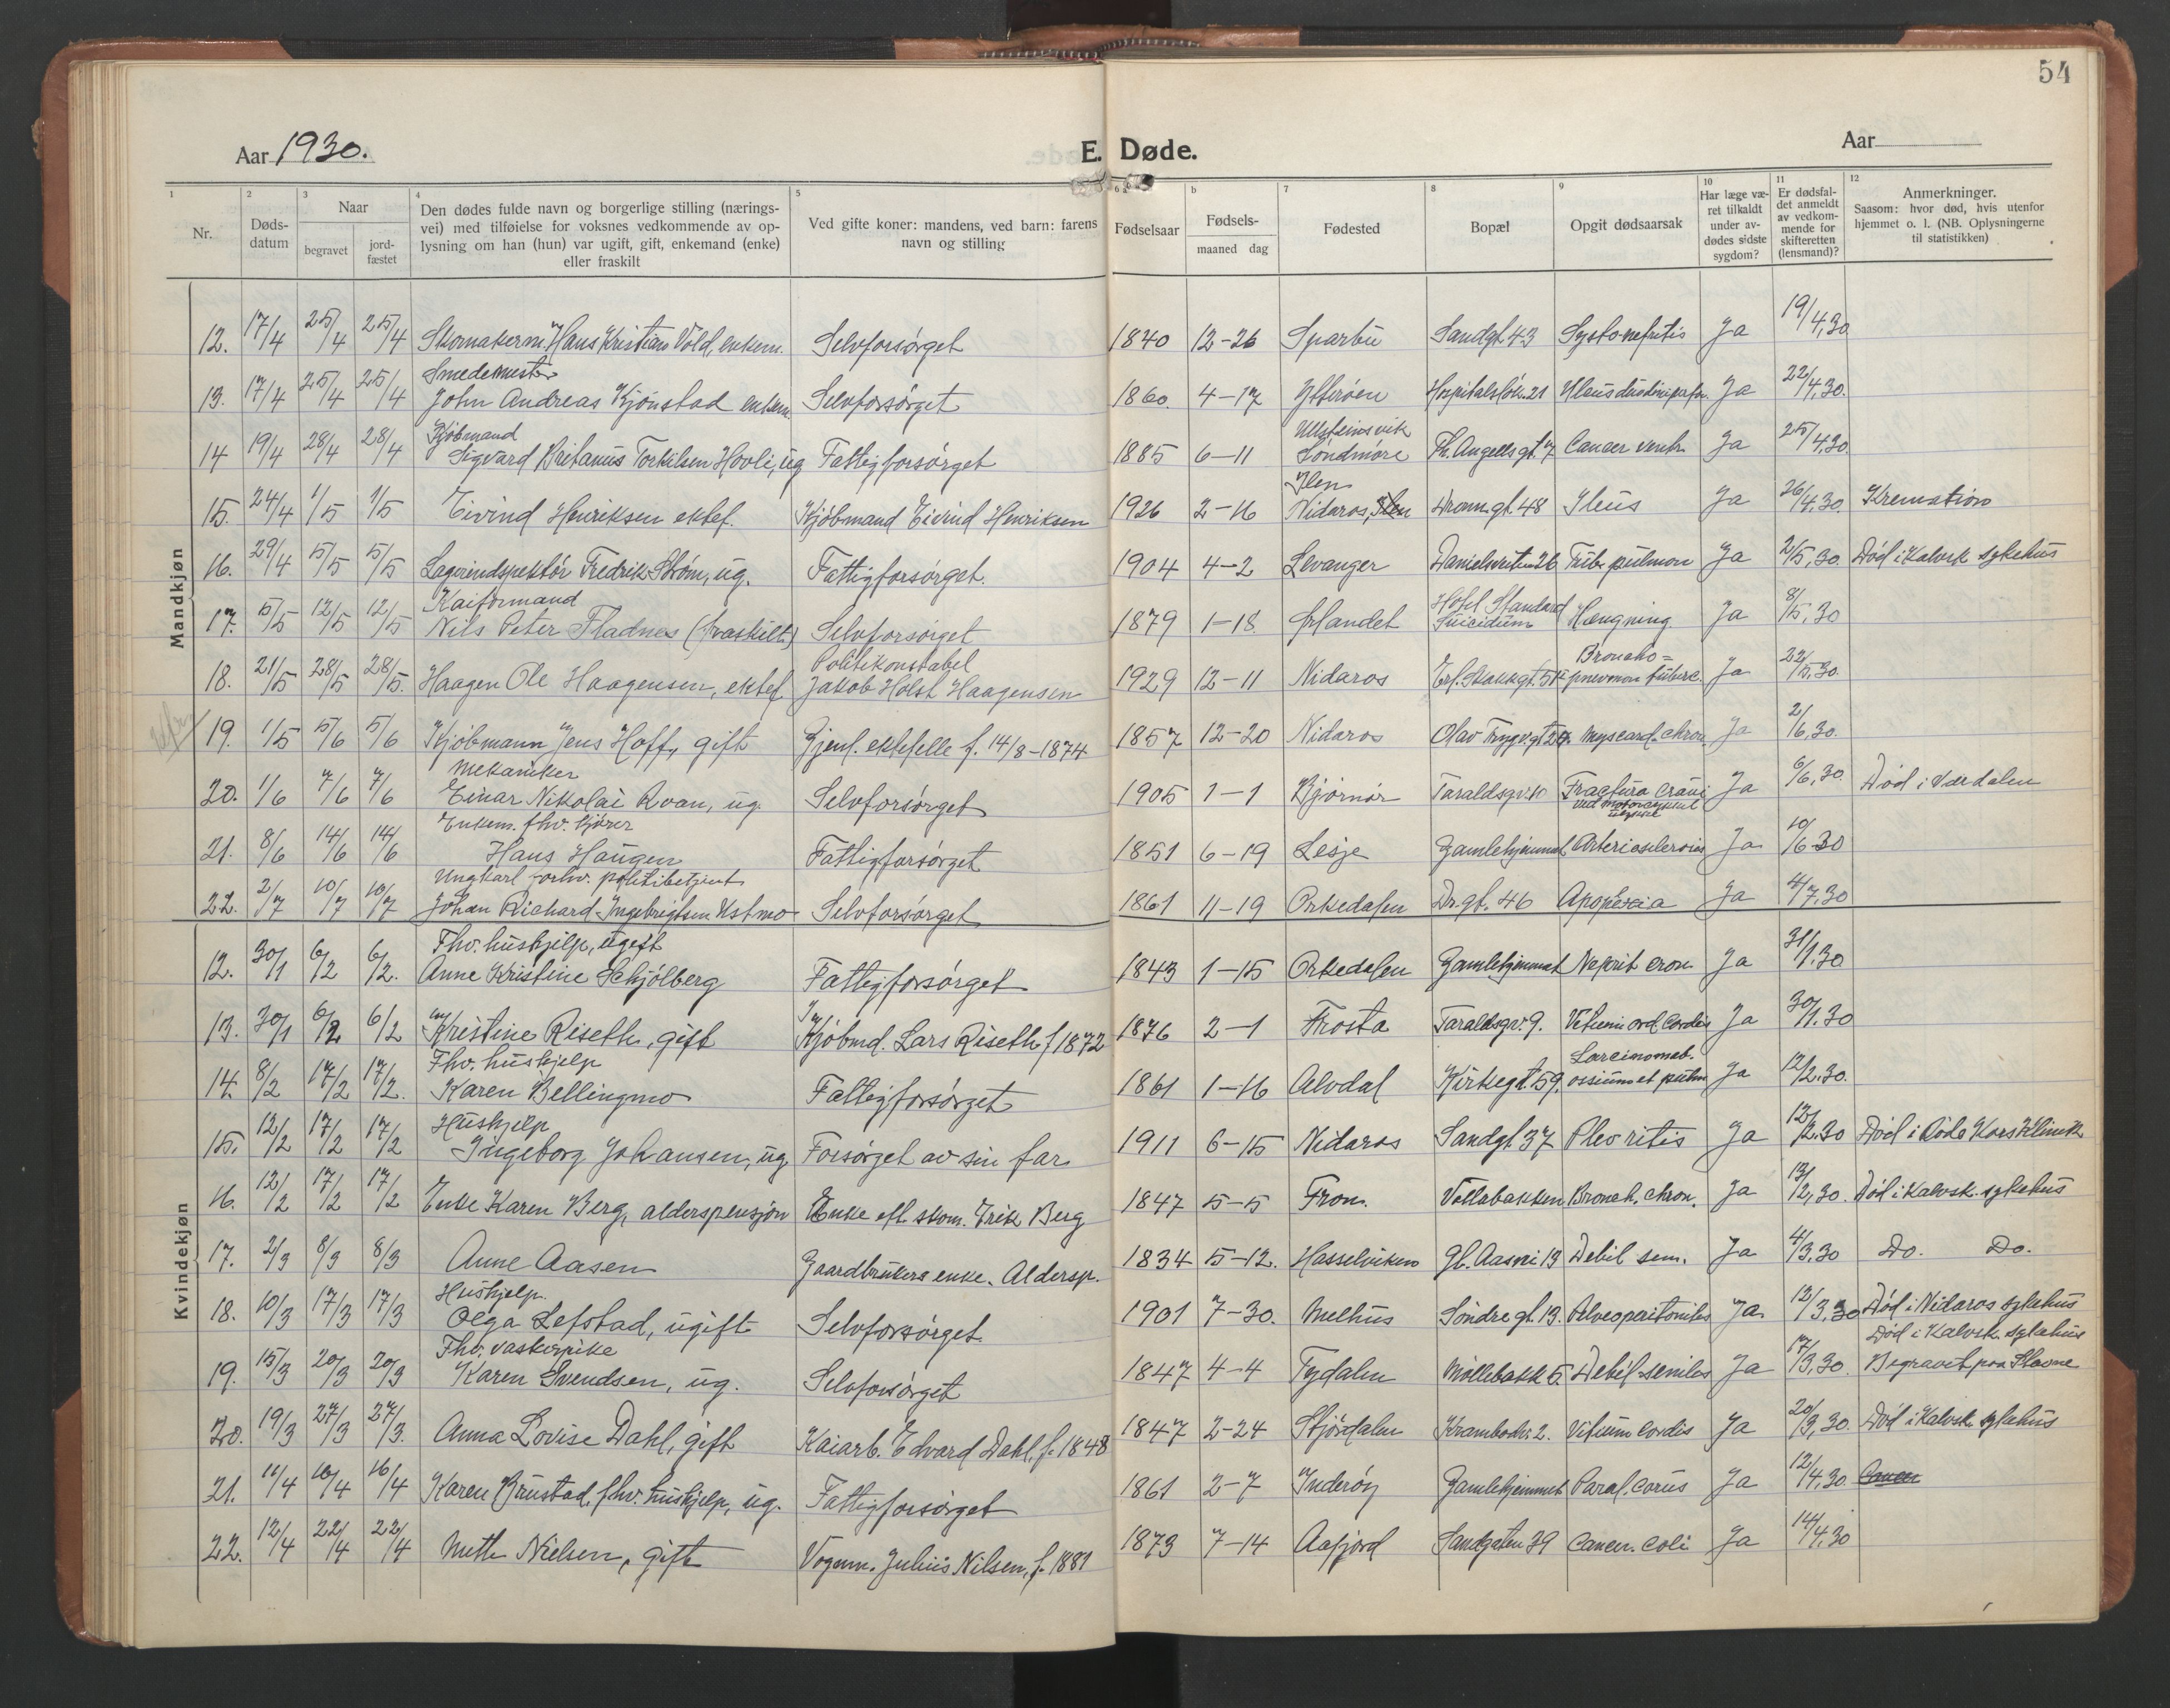 54
Aar 1930.
E. Døde.
Aar
1 2 3 4 5 6 a b 7 8 9 10 11 12
Nr.
Døds-
datum
Naar
begravet
jord-
fæstet
Den dødes fulde navn og borgerlige stilling (nærings-
vei) med tilføielse for voksnes vedkommende av op-
lysning om han (hun) var ugift, gift, enkemand (enke)
eller fraskilt
Ved gifte koner: mandens, ved barn: farens
navn og stilling
Fødselsaar
Fødsels-
maaned dag
Fødested
Bopæl
Opgit dødsaarsak
Har læge væ-
ret tilkaldt
under av-
dødes sidste
sygdom?
Er dødsfal-
det anmeldt
av vedkom-
mende for
skifteretten
(lensmand)?
Anmerkninger.
Saasom: hvor død, hvis utenfor
hjemmet o. l. (NB. Oplysningerne
til statistikken)
Mandkjøn
12. 17/4 25/4 25/4 Skomakerm. Hans Kristian Vold, enkem. Selvforsørget 1840 12-26 Sparbu Sandgt. 43 Systo-nefritis Ja 19/4,30
Smedemester
13. 17/4 25/4 25/4 John Andreas Kjønstad enkem. Selvforsørget 1860. 4-17 Ytterøen Hospitalsløk. 21 Ja 22/4,30.
Kjøbmand Ulsteinsvik
14 19/4 28/4 28/4 Sigvard Britanus Torkilsen Hovli, ug Fattigforsørget 1885 6-11 Søndmøre Th. Angells gt. 7 Cancer ventr. Ja 25/4,30
Ilen
15. 24/4 1/5 1/5 Eivind Henriksen ektef. Kjøbmand Eivind Henriksen 1926 2-16 Nidaros, Ilen Dronn. gt. 48 Ileus Ja 26/4.30. Kremation
16. 29/4 5/5 5/5 Lagerindspektør Fredrik Strøm, ug. Fattigforsørget. 1904 4-2 Levanger Danielsveiten 26 Tub. pulmon Ja 2/5,30. Død i Kalvsk sykehus
Kaiformand Hotel Standard
17. 5/5 12/5 12/5 Nils Peter Fladnes (fraskilt) Selvforsørget 1879 1-18. Ørlandet Suicidum Hængning. Ja 8/5,30
Politikonstabel Broncho=
18. 21/5 28/5 28/5. Haagen Ole Haagensen, ektef. Jakob Holst Haagensen 1929 12-11 Nidaros Erl. Skakkgt. 51 pnevmon tuberc. Ja 22/5,30.
19. 1/5 5/6 5/6 Kjøbmann Jens Hoff, gift Gjenl. ektefelle f. 14/8-1874 1857 12-20 Nidaros Olav Trygv. gt. Myocard. chron. Ja 2/6,30.
Mekaniker
20. 1/6 7/6 7/6 Einar Nikolai Roan, ug. Selvforsørget 1905 1-1 Bjørnør Taraldsgv. 10 Fractura crani Ja 6/6,30. Død i Værdalen
Enkem. fhv. kjører ved motorcykkel
21. 8/6 14/6 14/6 Hans Haugen Fattigforsørget 1851 6-19 Lesje Gamlehjemmet Arteriosclerosis Ja 10/6-30
Ungkarl forhv. politibetjent
22. 2/7 10/7 10/7 Johan Richard Ingebrigtsen Ustmo Selvforsørget 1861 11-19 Orkedalen Dr. gt. 46 Apoplexia Ja 4/7,30
Kvindekjøn
Fhv. hushjelp, ugift
12. 30/1 6/2 6/2. Anne Kristine Schjølberg Fattigforsørget 1843 1-15 Orkedalen Gamlehjemmet Nefrit cron Ja 31/1.30
13. 30/1 6/2. 6/2 Kristine Riseth, gift Kjøbmd. Lars Riseth f 1872 1876 2-1 Frosta Taraldsgv. 9. Ja 30/1.30
Fhv. hushjelp Carcinomat.
14. 8/2 17/2 17/2. Karen Bellingmo Fattigforsørget 1861 1-16 Alvdal Kirkegt. 59. ossium et pulm Ja 12/2.30.
Hushjelp
15. 12/2 17/2 17/2 Ingeborg Johansen, ug Forsørget av sin far 1911 6-15 Nidaros Sandgt 37 Plevritis Ja 12/2.30 Død i Røde Kors Klinik
16. 12/2 17/2 17/2 Enke Karen Berg, alderspensjon Enke eft. skom. Erik Berg 1847 5-5 Fron. Vollabakken Bronch. chron. Ja 13/2,30. Død i Kalvsk. sykehus
17. 2/3 8/3 8/3 Anne Aasen Gaardbrukers enke. Aldersp. 1834 5-12. Hasselviken Gl. Aasvei 13 Debil. sen. Ja 4/3,30 Do. Do.
Hushjelp.
18. 10/3 17/3 17/3 Olga Lefstad, ugift Selvforsørget 1901 7-30. Melhus Søndre gt. 13. Pelveoperitonitis Ja. 12/3,30 Død i Nidaros sykehus
Fhv. vaskerpike Død i Kalvsk. sykehus
19. 15/3 20/3 20/3 Karen Svendsen, ug. Selvforsørget 1847 4-4 Tydalen Møllebakk 5. Debil. seniles Ja 17/3,30. Begravet paa Stavne
20. 19/3 27/3 27/3. Anna Lovise Dahl, gift Kaiarb. Edvard Dahl. f. 1848 1847 2-24 Stjørdalen Krambodv. 2. Vitium cordis Ja 20/3,30. Død i Kalvsk. sykehus
21. 11/4 16/4 16/4 Karen Brustad fhv. hushjelp, ug. Fattigforsørget 1861 2-7 Inderøy Gamlehjemmet Ja 12/4,30. Cancer
22. 12/4 22/4 22/4 Meth Nielsen, gift Vognm. Julius Nilsen, f. 1881 1873 7-14 Aafjord Sandgaten 39 Cancer. Coli Ja 14/4,30